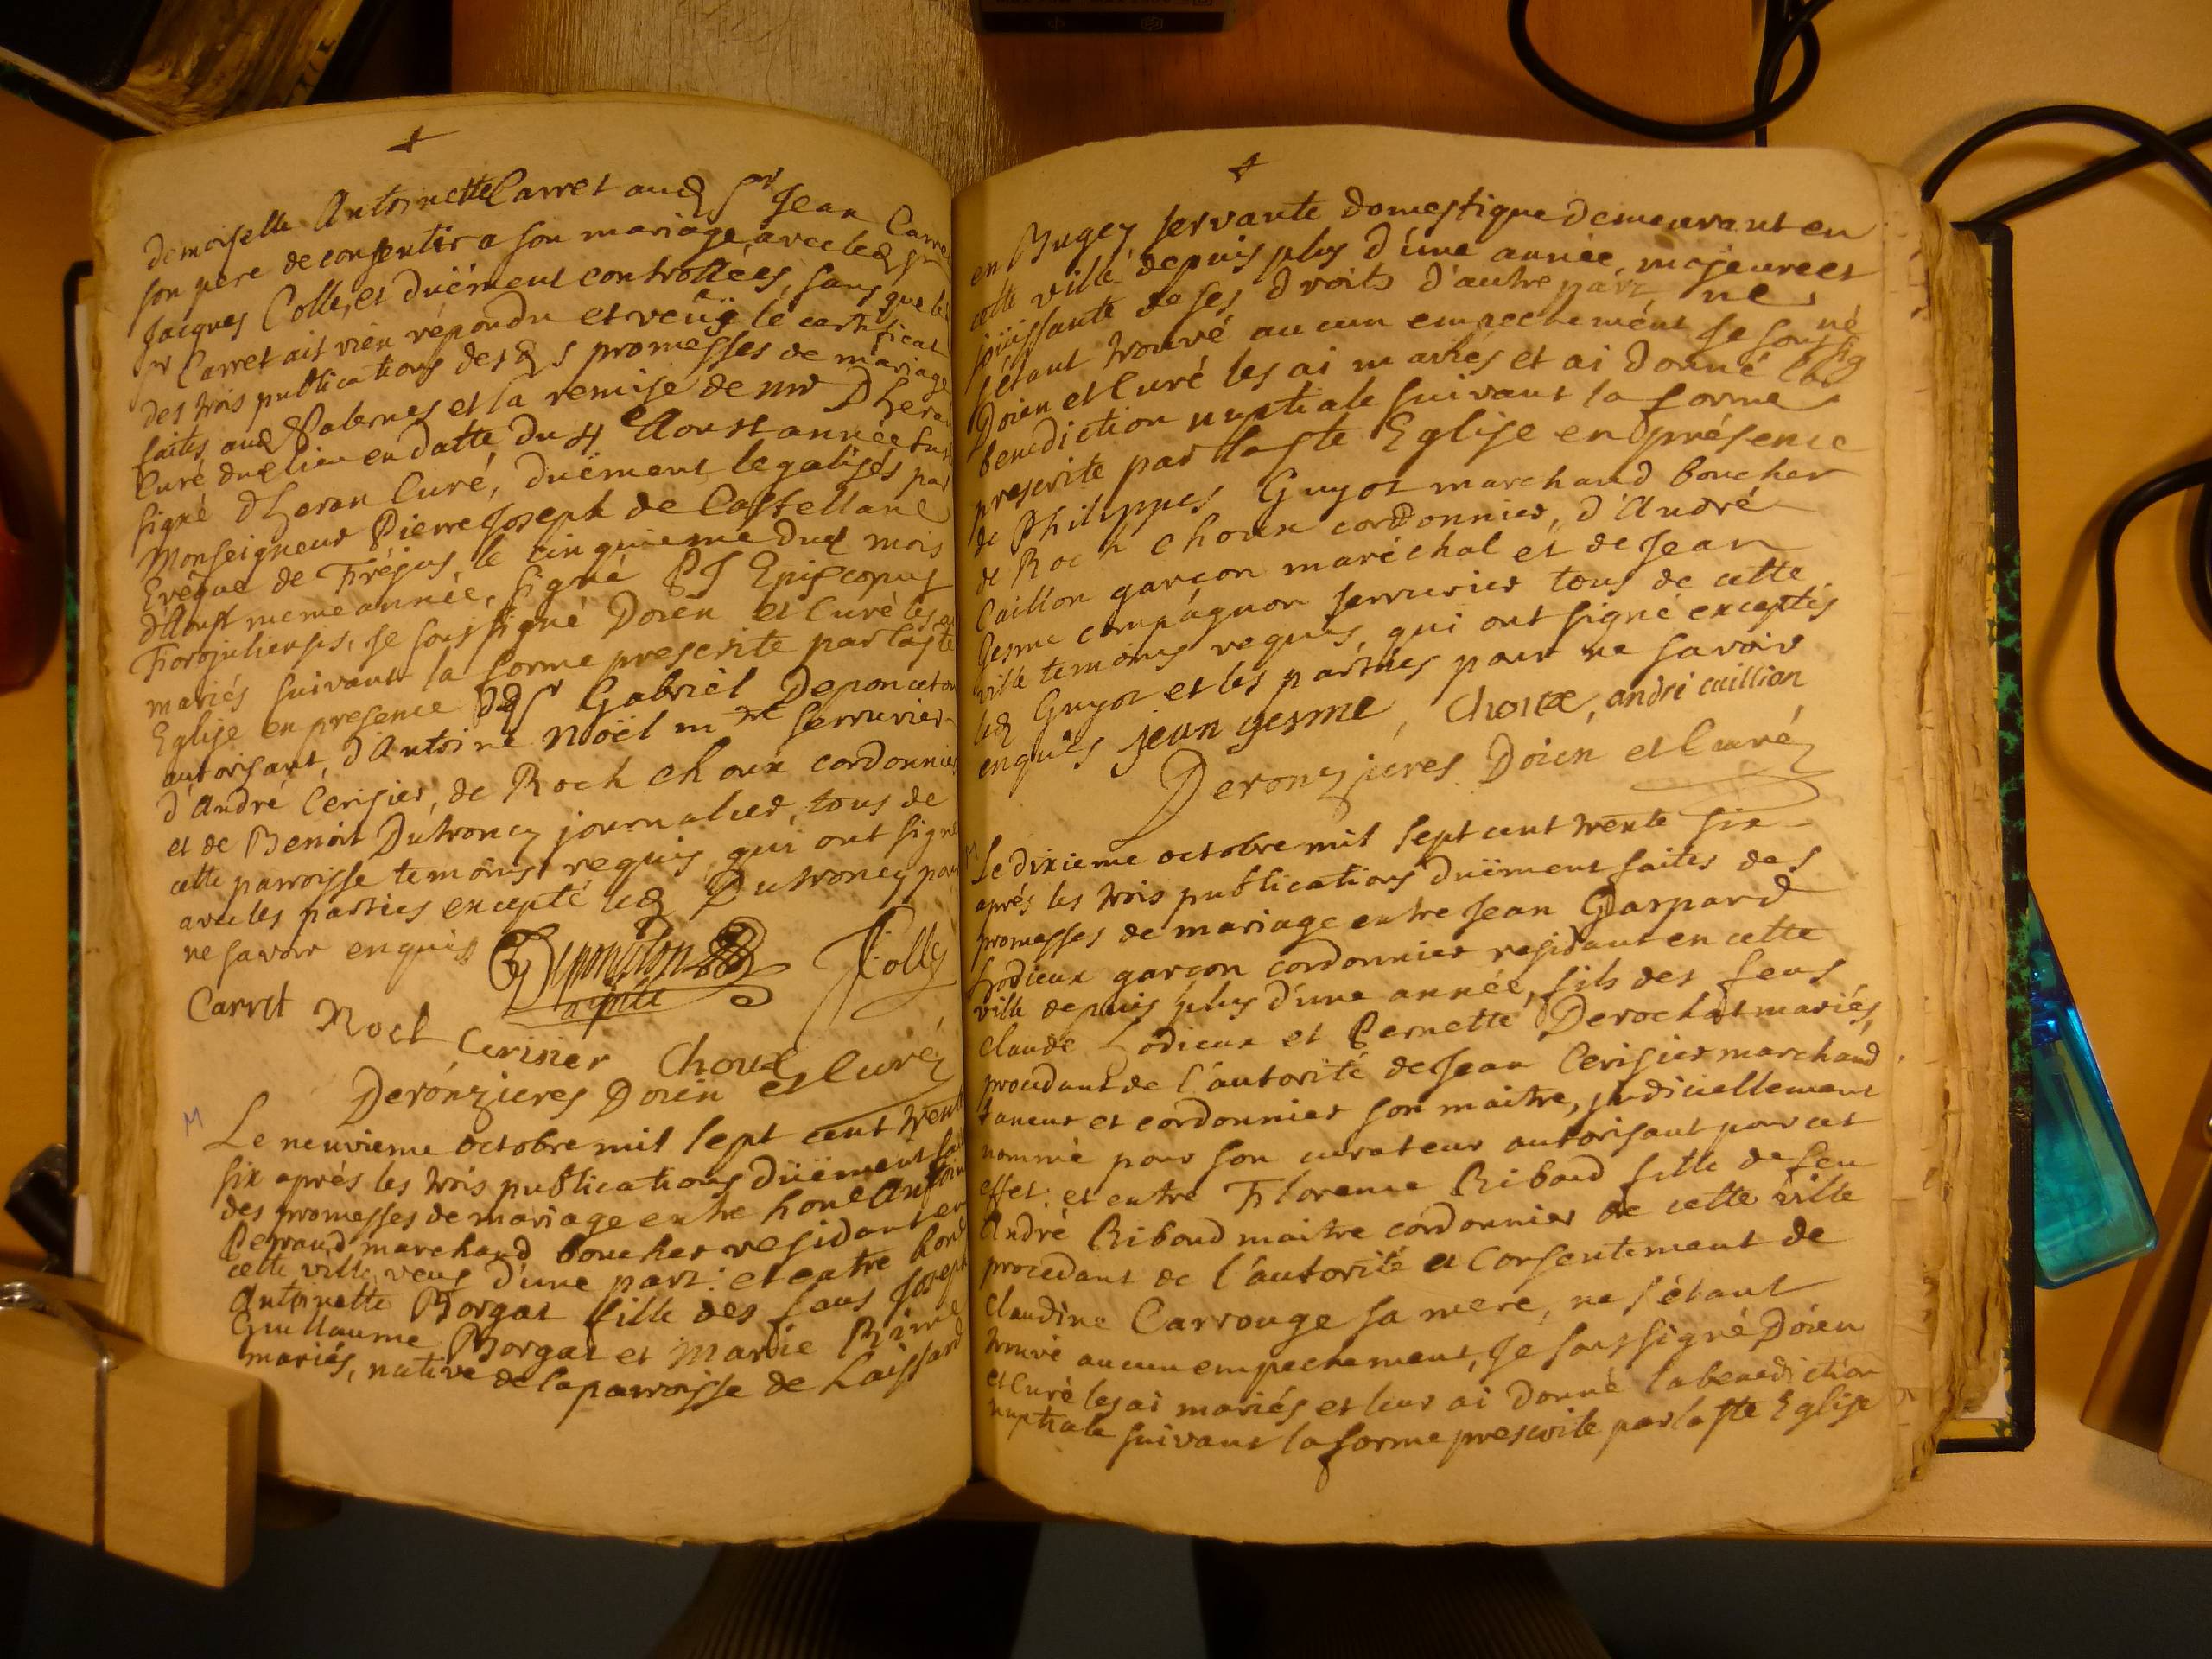 demoiselle Antoinette Carret aud Sr Jean Carret
son pere de consentir a son mariage avec led Sr
Jacques Colle, et duëment controllées, sans que led
Sr Carret ait rien répondu et veüe le certificat
des trois publications desd s promesses de mariage
faites aud et la remise de mr Dheran
Curé dud lieu en datte du 4 Aoust année
signé Dheran Curé, duëment legalisés par
Monseigneur Pierre Joseph de Castellane
Evêque de Fréjus le cinquieme dud mois
d'Aoust meme année, signé PJ Episcopus
Forojuliensis, Je soussigné Doien et Curé les ai
mariés suivant la forme prescrite par la ste
Eglise en presence dud Sr Gabriel Deponceton
autorisant, d'Antoine Noël mtre serrurier
d'André Cerisier, de Roch Choux cordonnier
et de Benoit Dutroncy journalier, tous de
cette parroisse temoins requis qui ont signé
avec les parties excepté led Dutroncy pour
ne savoir enquis Deponceton JColle
Carret Noel Cerisier Choux
Deronzieres Doien et Curé
M
Le neuvieme octobre mil sept cent trente
six aprés les trois publications duëment faites
des promesses de mariage entre hone Antoine
Perraud marchand boucher residant en
cette ville, veuf d'une part: et entre hone
Antoinette Borgat fille des feus Joseph
Guillaume Borgat et Marie
mariés, native de la parroisse de
en Bugey servante domestique demeurant en
cette ville depuis plus d'une année, majeure et
joüissante de ses droits d'autre part, ne
s'étant trouvé aucun empechement Je soussigné
Doien et Curé les ai mariés et ai donné la
benediction nuptiale suivant la forme
prescrite par la ste Eglise en présence
de Philippes Guyot marchand boucher
de Roch Choux cordonnier, d'André
Caillon garçon maréchal et de Jean
Gesme compagnon serrurier tous de cette
ville temoins requis, qui ont signé exceptés
led Guyot et les parties pour ne savoir
enquis jean gesme, Choux, andré caillion
Deronzieres Doien et Curé
M
Le dixieme octobre mil sept cent trente six
aprés les trois publications duëment faites des
promesses de mariage entre Jean Gaspard
Lodieux garçon cordonnier residant en cette
ville depuis plus d'une année, fils des feus
Claude Lodieux et Pernette Derochat mariés,
procedant de l'autorité de Jean Cerisier marchand
taneur et cordonnier son maitre, judiciellement
nommé pour son curateur autorisant pour cet
effet: et entre Florence Riboud fille de feu
André Riboud maitre cordonnier de cette ville
procedant de l'autorité et consentement de
Claudine Carrouge sa mere, ne s'étant
trouvé aucun empechement, Je soussigné Doien
et Curé les ai mariés et leur ai donné la benediction
nuptiale suivant la forme prescrite par la ste Eglise